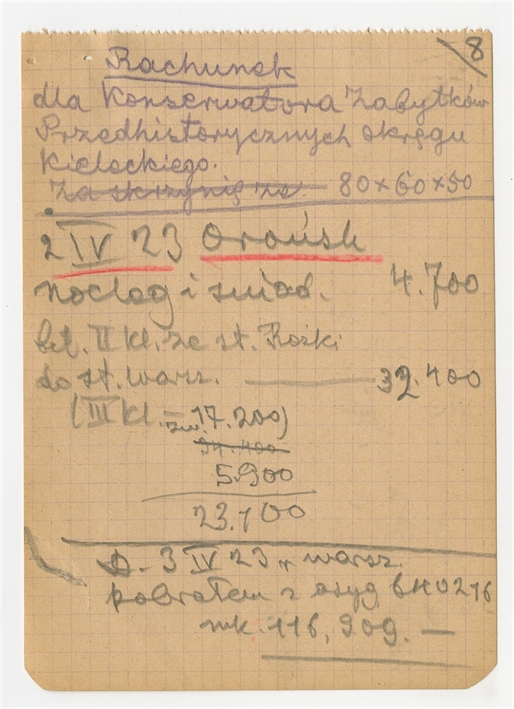 8
Rachunek
dla Konserwatora Zabytków
Przedhistorycznych okręgu
Kieleckiego.
Za skrzynię ze 80×60×50
2 IV 23 Orońsk
nocleg i śniad. 4.700
bil. II kl. ze st. Rożki
do st. warsz. 32.400
(III kl. – 17.200)
5.900
23.100
D. 3 IV 23 w warsz.
pobrałem z asyg
mk. 116,909.—